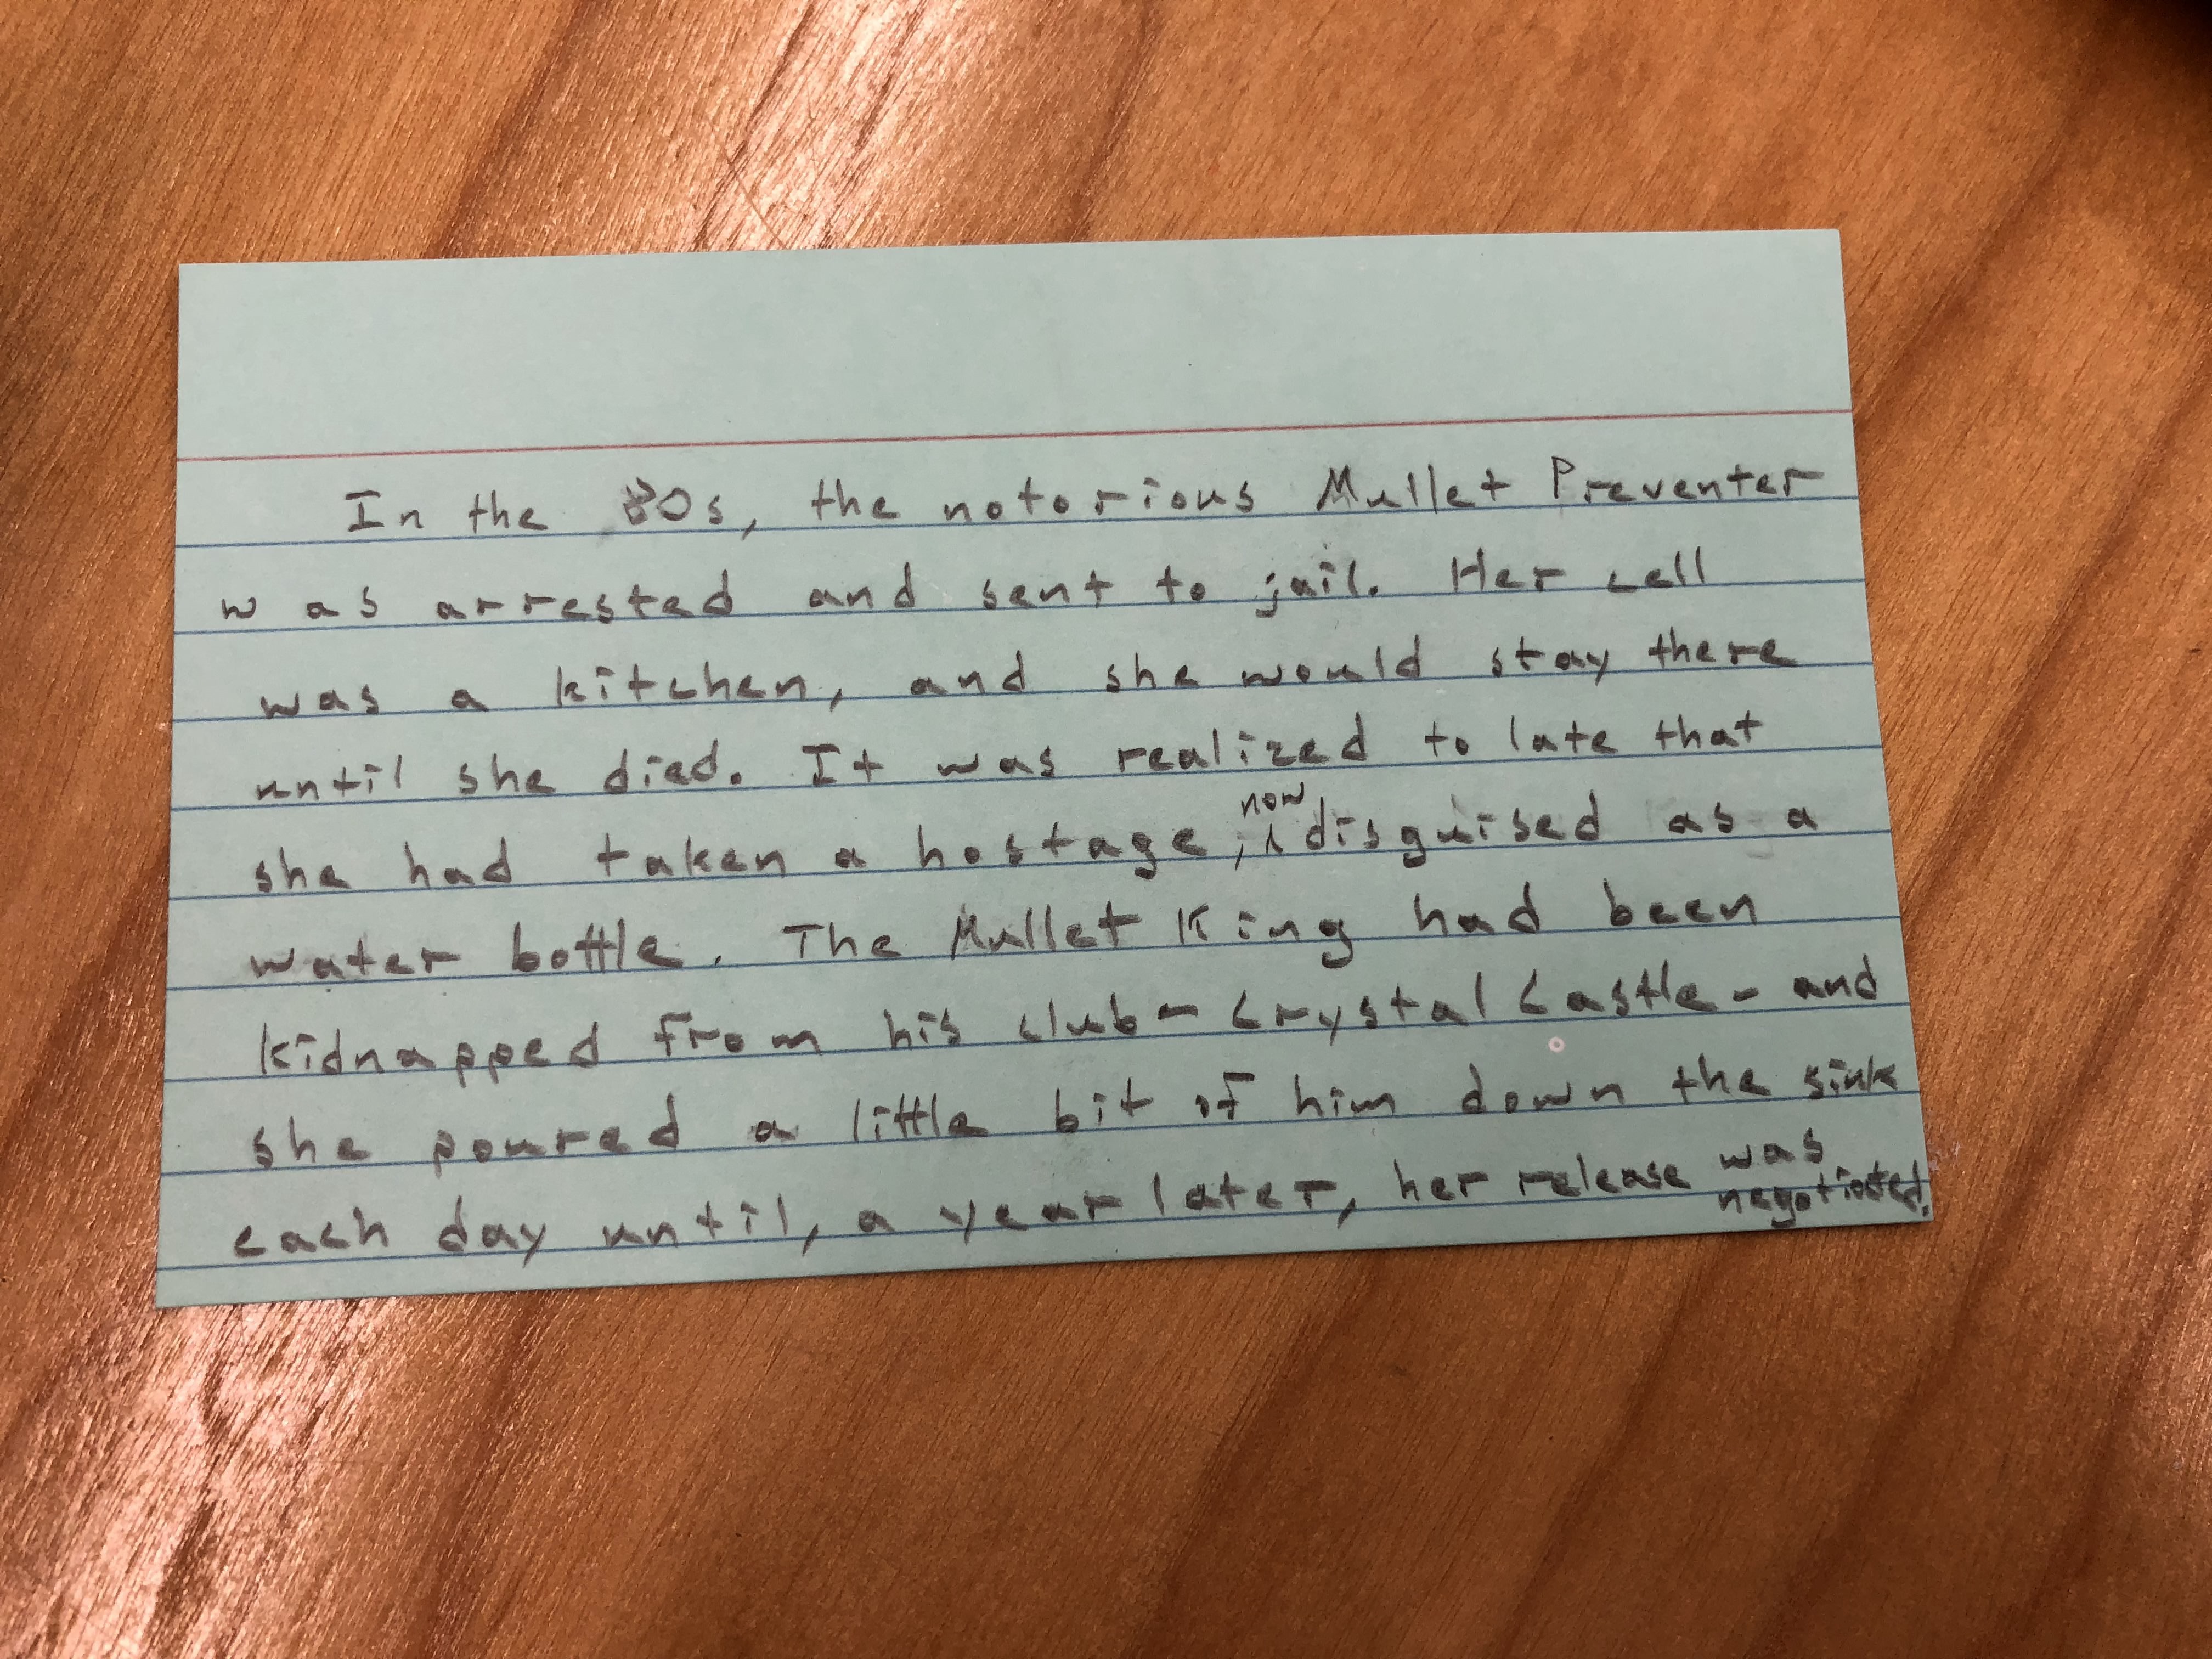 In the 80s, the notorious Mullet Preventer
was arrested and sent to jail. Her cell
was a kitchen, and she would stay there
until she died. It was realized to late that
she had taken a hostage, now disguised as a
water bottle. The Mullet King had been
kidnapped from his club - Crystal Castle - and
she poured a little bit of him down the sink
each day until, a year later, her release was
negotiated.